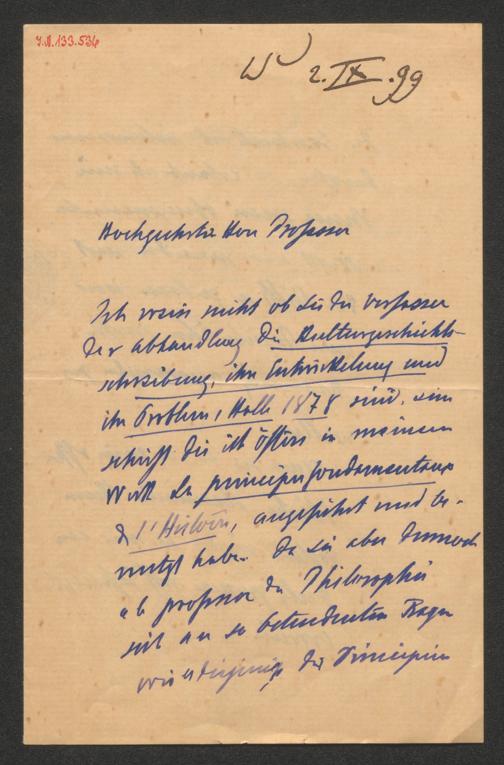 J.N. 133.536
W 2. IX. 99
Hochgeehrter Herr Professor
Ich weiss nicht ob Sie der verfasser
der abhandlung die Kulturgeschichts-
schreibung, ihre Entwickelung und
ihr Problem, Halle 1878 sind, eine
schrift die ich öfters in meinem
Werk Les principes fondamentaux
de l'Histoire, angeführt und be-
nutzt habe. Da sie aber dennoch
als professor der Philosophie
sich an so bedeutenden Fragen
wie diejenige der Principien